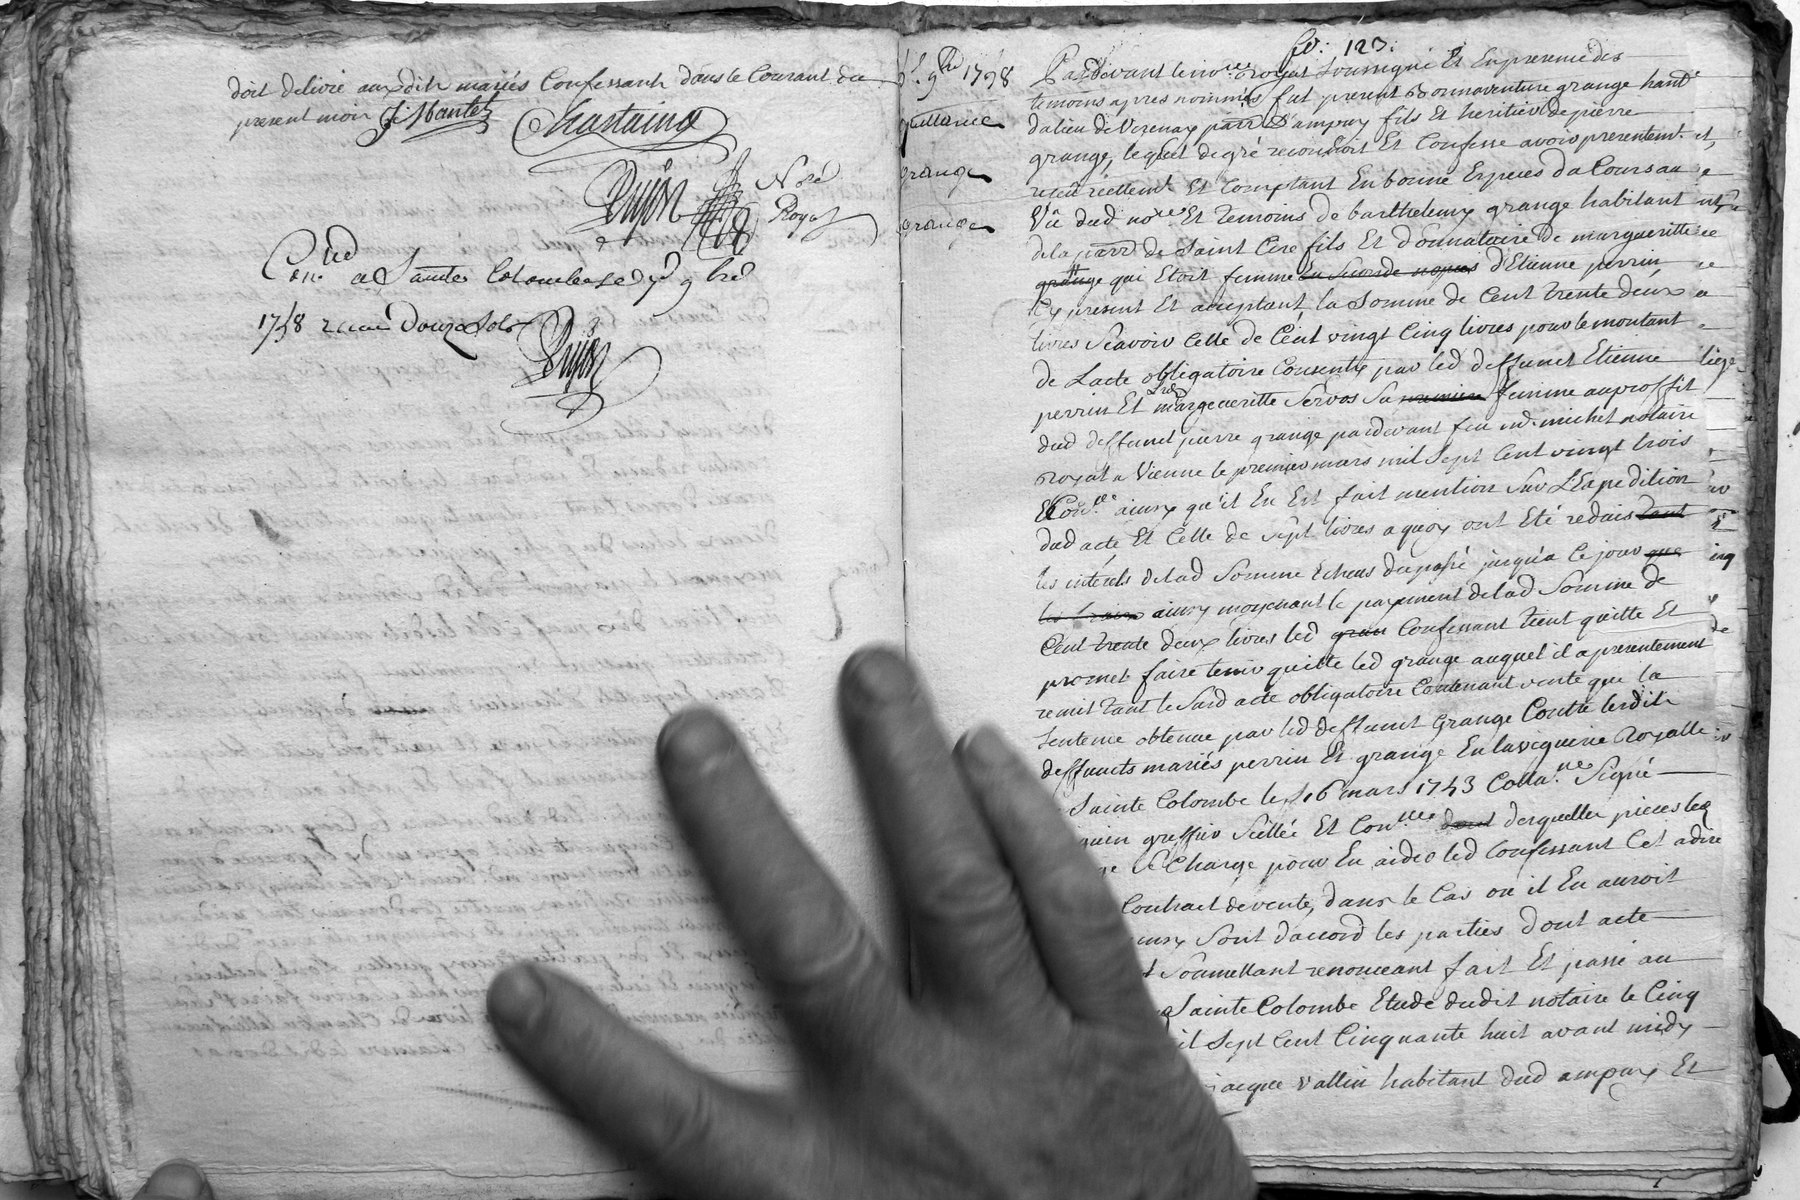 doit delivré aux dits mariés Confessants dans le Courant du
present mois J. Mantel Chastaing
Dujon Nore
Royal
Con.lled a Sainte Colombe le d. 9 bre
1758 recu Douze sols
Dujon
fo: 123:
5e. 9bre 1758
quittance
grange
grange
Pardevant le no.re Royal Soussigné Et En presence des
temoins apres nommés fut present Bonnaventure grange hant
du lieu de Verenay parr. D'ampuy fils Et heritier de pierre
grange, lequel de gré reconnoit Et Confesse avoir presentemt.
receu réellemt. Et Comptant En bonne Especes du Cours au
Vû dud no.re Et Temoins de barthelemy grange habitant
de la parr de Saint Cire fils Et Donnataire de margueritte
grange qui Etoit femme En Seconde nopces d'Etienne perrin
Cy present Et aceptant, la Somme de Cent Trente deux
livres Scavoir Celle de Cent vingt Cinq livres pour le montant
de L'acte obligatoire Consenty par led deffunct Etienne
perrin Et Lad margueritte Servos Sa premiere femme au proffit
dud deffunct pierre grange pardevant feu me. michel notaire
Royal a Vienne le premier mars mil Sept Cent vingt trois
Et Con.lle ainsy qu'il En Est fait mention Sur L'Expedition
dud acte, Et Celle de Sept livres a quoy ont Eté reduis tant
les interets de lad Somme Echeus du passé jusqu'a Ce jour que
les fraix ainsy moyenant le payement de lad Somme de
Cent Trente deux livres led gran Confessant Tient quitte Et
promet faire tenir quitte led grange auquel il a presentement
remit Tant le Susd acte obligatoire Contenant vente que la
Sentence obtenue par led deffunct Grange Contre lesdits
deffuncts mariés perrin Et grange En la viguerie Royalle
Sainte Colombe le 16 mars 1743 Colla.nné Signé
greffier Sçellée Et Con.llée dont desquelles pieces led
ge Se Charge pour En aider led Confessant Cet adire
Contract de vente, dans le Cas ou il En auroit
Sont d'accord les parties Dont acte
t Soumettant renonceant fait Et passé au
Sainte Colombe Etude dudit notaire le Cinq
il Sept Cent Cinquante huit avant midy
jacque vallin habitant dud ampuy Et